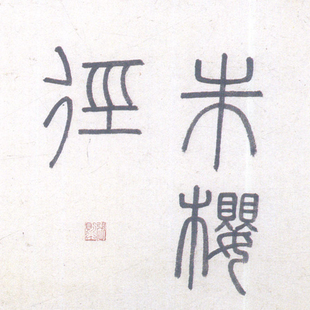 朱櫻
徑